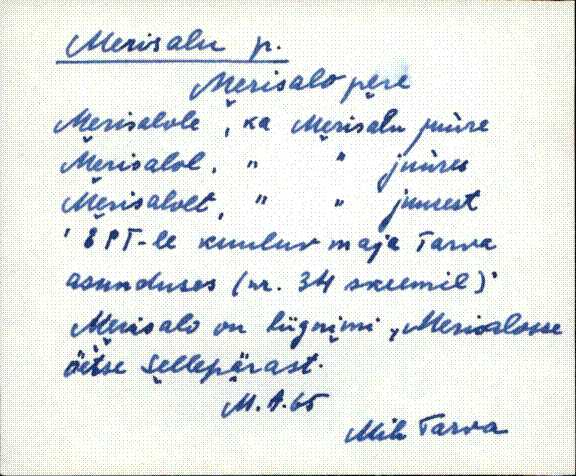 Merisalu p.
Merisalo pere
Merisalole, ka Merisalu juure
Merisalol, " " juures
Merisalolt, " " juurest
' EPT-le kuuluv maja Tarva
asunduses (nr. 34 skeemil)'
Merisalo on liignimi, Merisalosse
öetse sellepärast.
M. A. 65
Mih Tarva